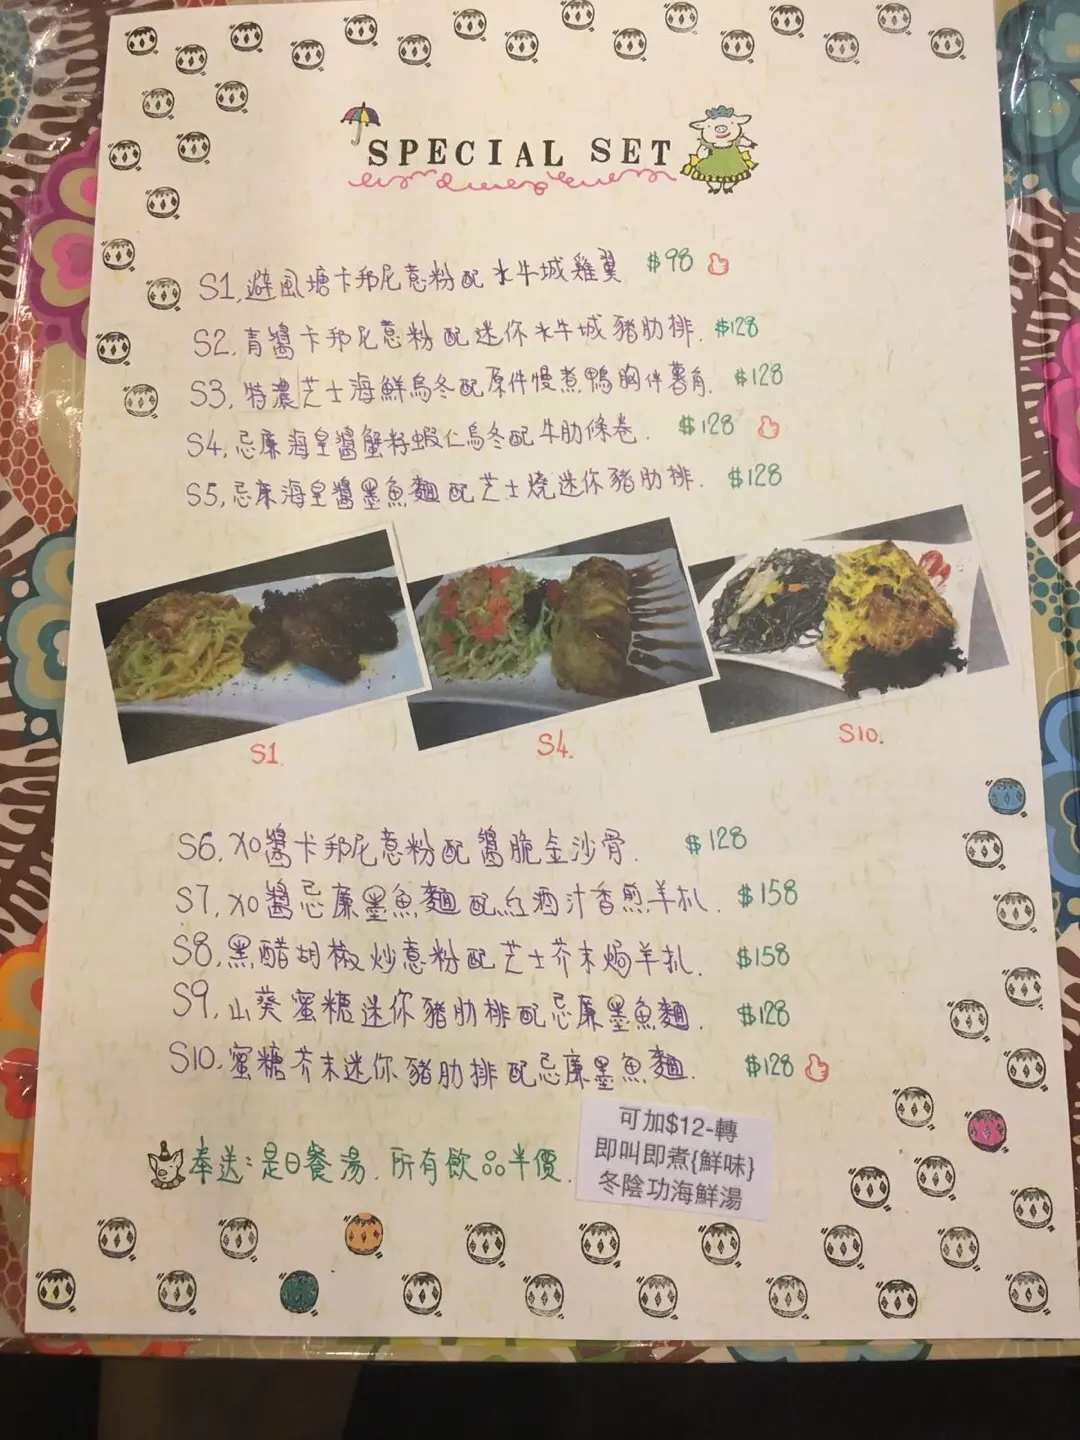 SPECIAL SET
S1.避風塘卡邦尼意粉配水牛城雞翼 $98
S2.青醬卡邦尼意粉配迷你水牛城豬肋排. $128
S3.特濃芝士海鮮烏冬配原件慢煮鴨胸伴薯角. $128
S4.忌廉海皇醬蟹籽蝦仁烏冬配牛肋條卷. $128
S5.忌廉海皇醬墨魚麵配芝士燒迷你豬肋排. $128
S1.
S4.
S10.
S6.XO醬卡邦尼意粉配醬脆金沙骨. $128
S7.XO醬忌廉墨魚麵配紅酒汁香煎羊扒. $158
S8.黑醋胡椒炒意粉配芝士芥末焗羊扒. $158
S9.山葵蜜糖迷你豬肋排配忌廉墨魚麵. $128
S10.蜜糖芥末迷你豬肋排配忌廉墨魚麵. $128
奉送:是日餐湯.所有飲品半價.
可加$12-轉
即叫即煮{鮮味}
冬陰功海鮮湯